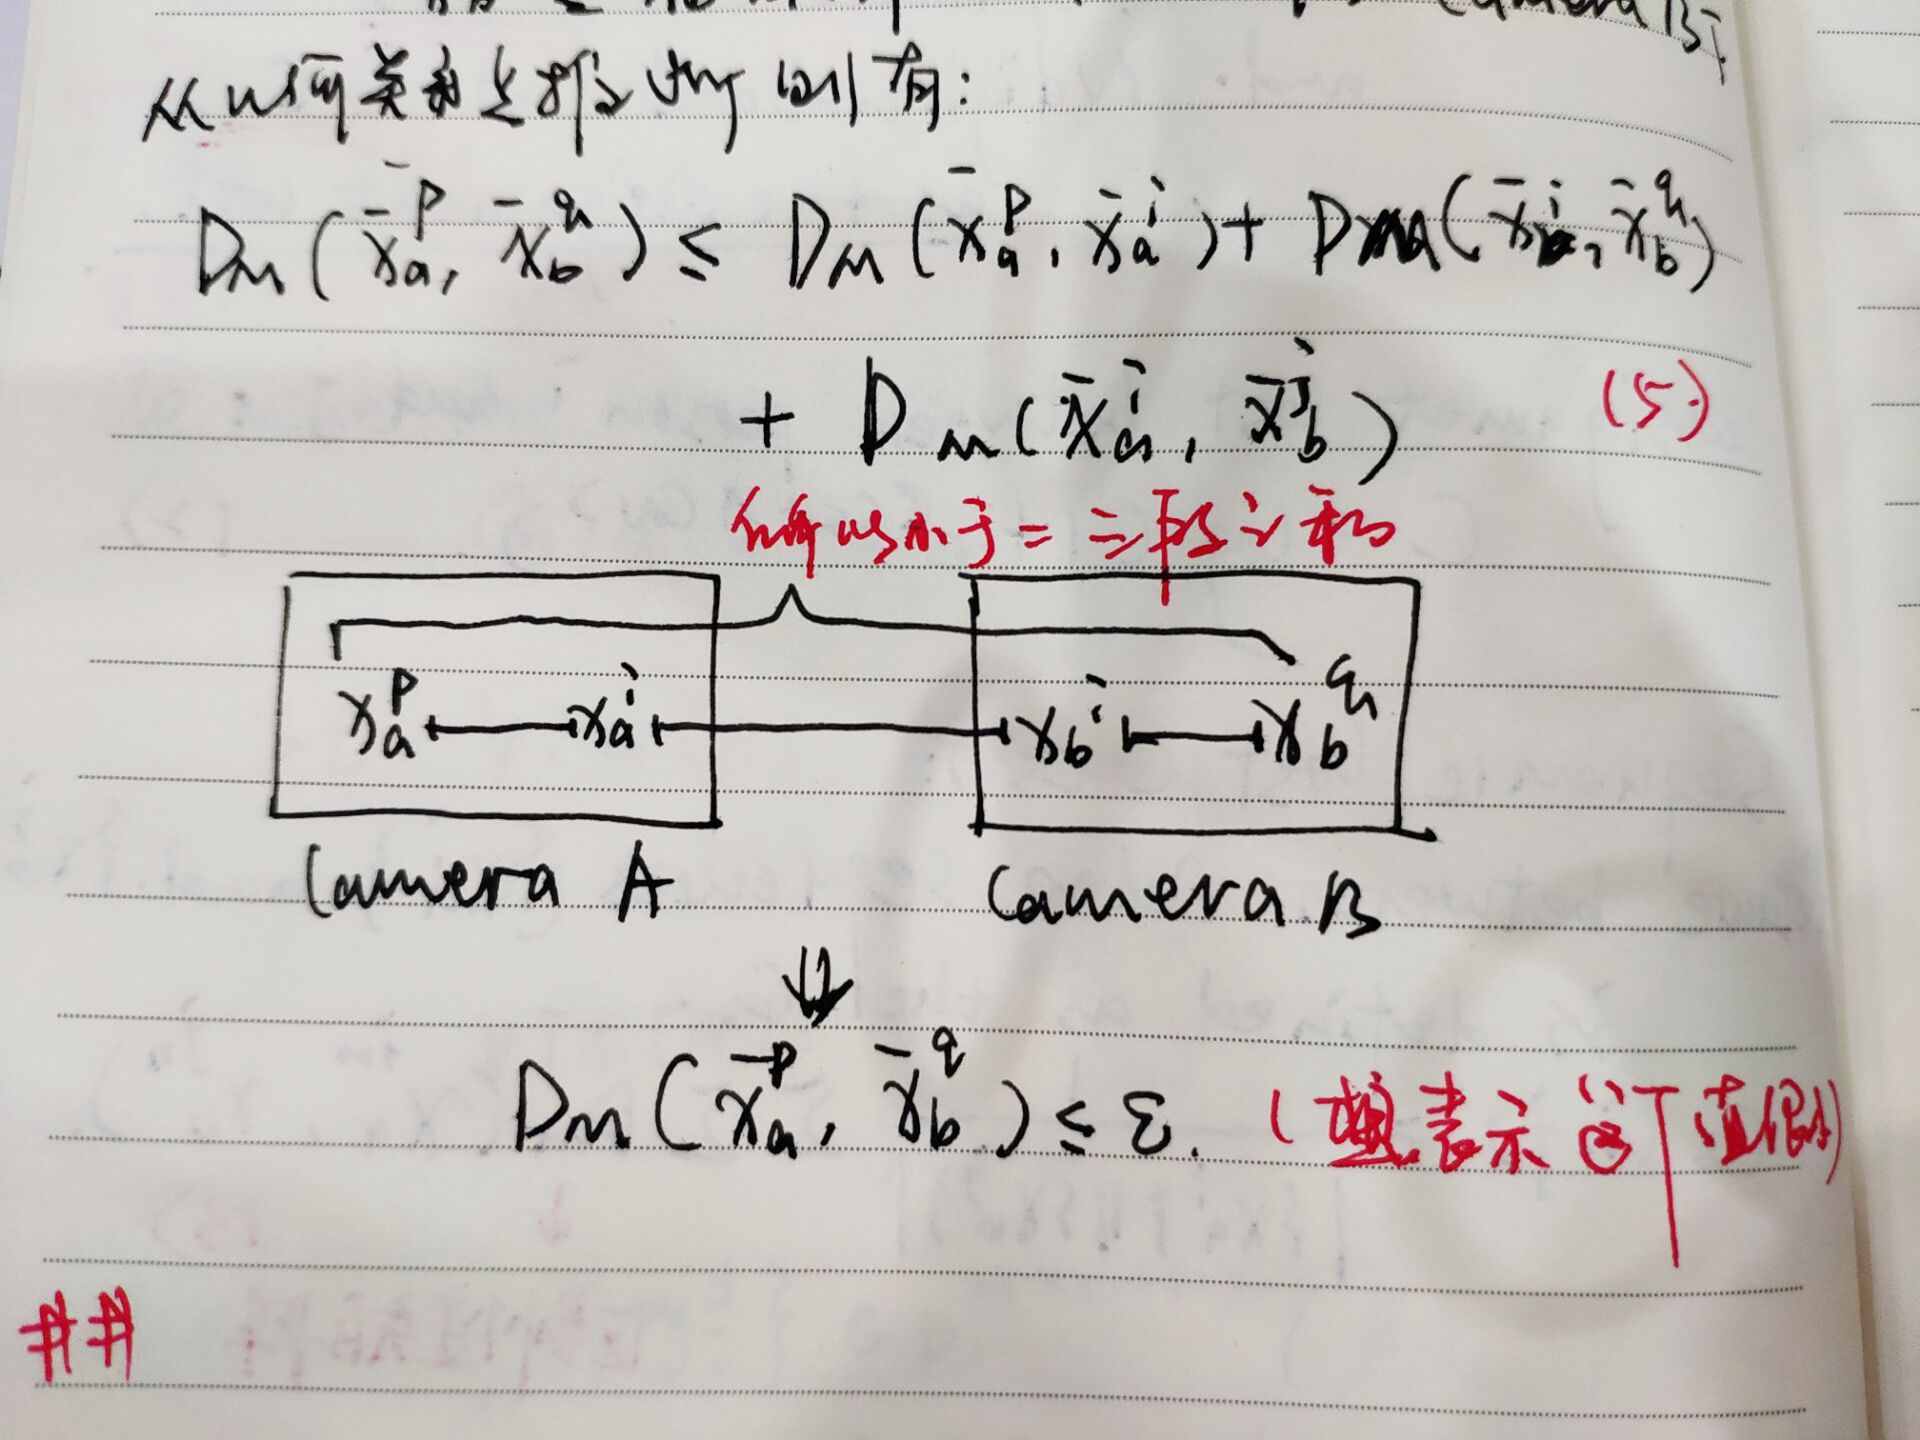 Camera B中
从几何关系上推断则有:
D_M(x̄_a^p, x̄_b^q) ≤ D_M(x̄_a^p, x̄_a^i) + D_M(x̄_b^i, x̄_b^q)
+ D_M(x̄_a^i, x̄_b^j) (5)
所以小于=三段之和
x_a^p x_a^i x_b^i x_b^q
Camera A Camera B
⇓
D_M(x̄_a^p, x̄_b^q) ≤ ε. (想表示这个值很小)
##